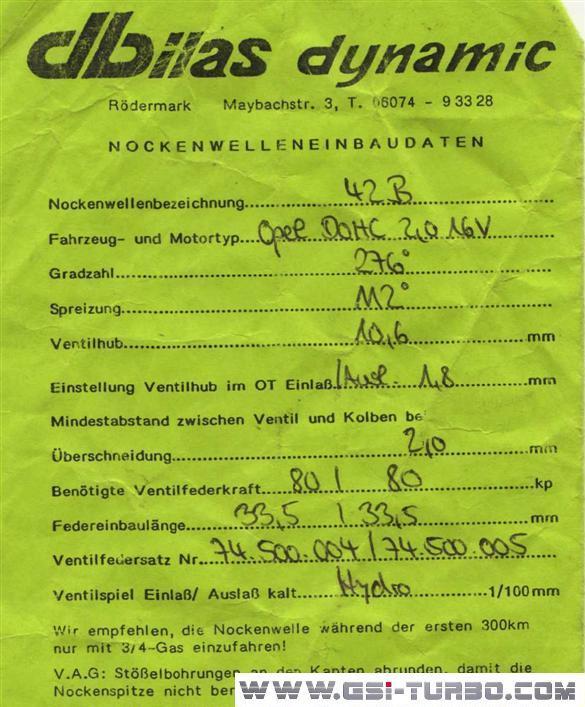 dbilas dynamic
Rödermark Maybachstr. 3, T. 06074 - 93328
NOCKENWELLENEINBAUDATEN
Nockenwellenbezeichnung 42B
Fahrzeug- und Motortyp Opel DOHC 2,0 16V
Gradzahl 276°
Spreizung 112°
Ventilhub 10,6 mm
Einstellung Ventilhub im OT Einlaß/Ausl. 1,8 mm
Mindestabstand zwischen Ventil und Kolben bei
Überschneidung 2,0 mm
Benötigte Ventilfederkraft 80 / 80 kp
Federeinbaulänge 33,5 / 33,5 mm
Ventilfedersatz Nr. 74.500.004 / 74.500.005
Ventilspiel Einlaß/ Auslaß kalt. Hydro 1/100 mm
Wir empfehlen, die Nockenwelle während der ersten 300km
nur mit 3/4-Gas einzufahren!
V.A.G: Stößelbohrungen an den Kanten abrunden, damit die
Nockenspitze nicht
WWW.GSI-TURBO.COM